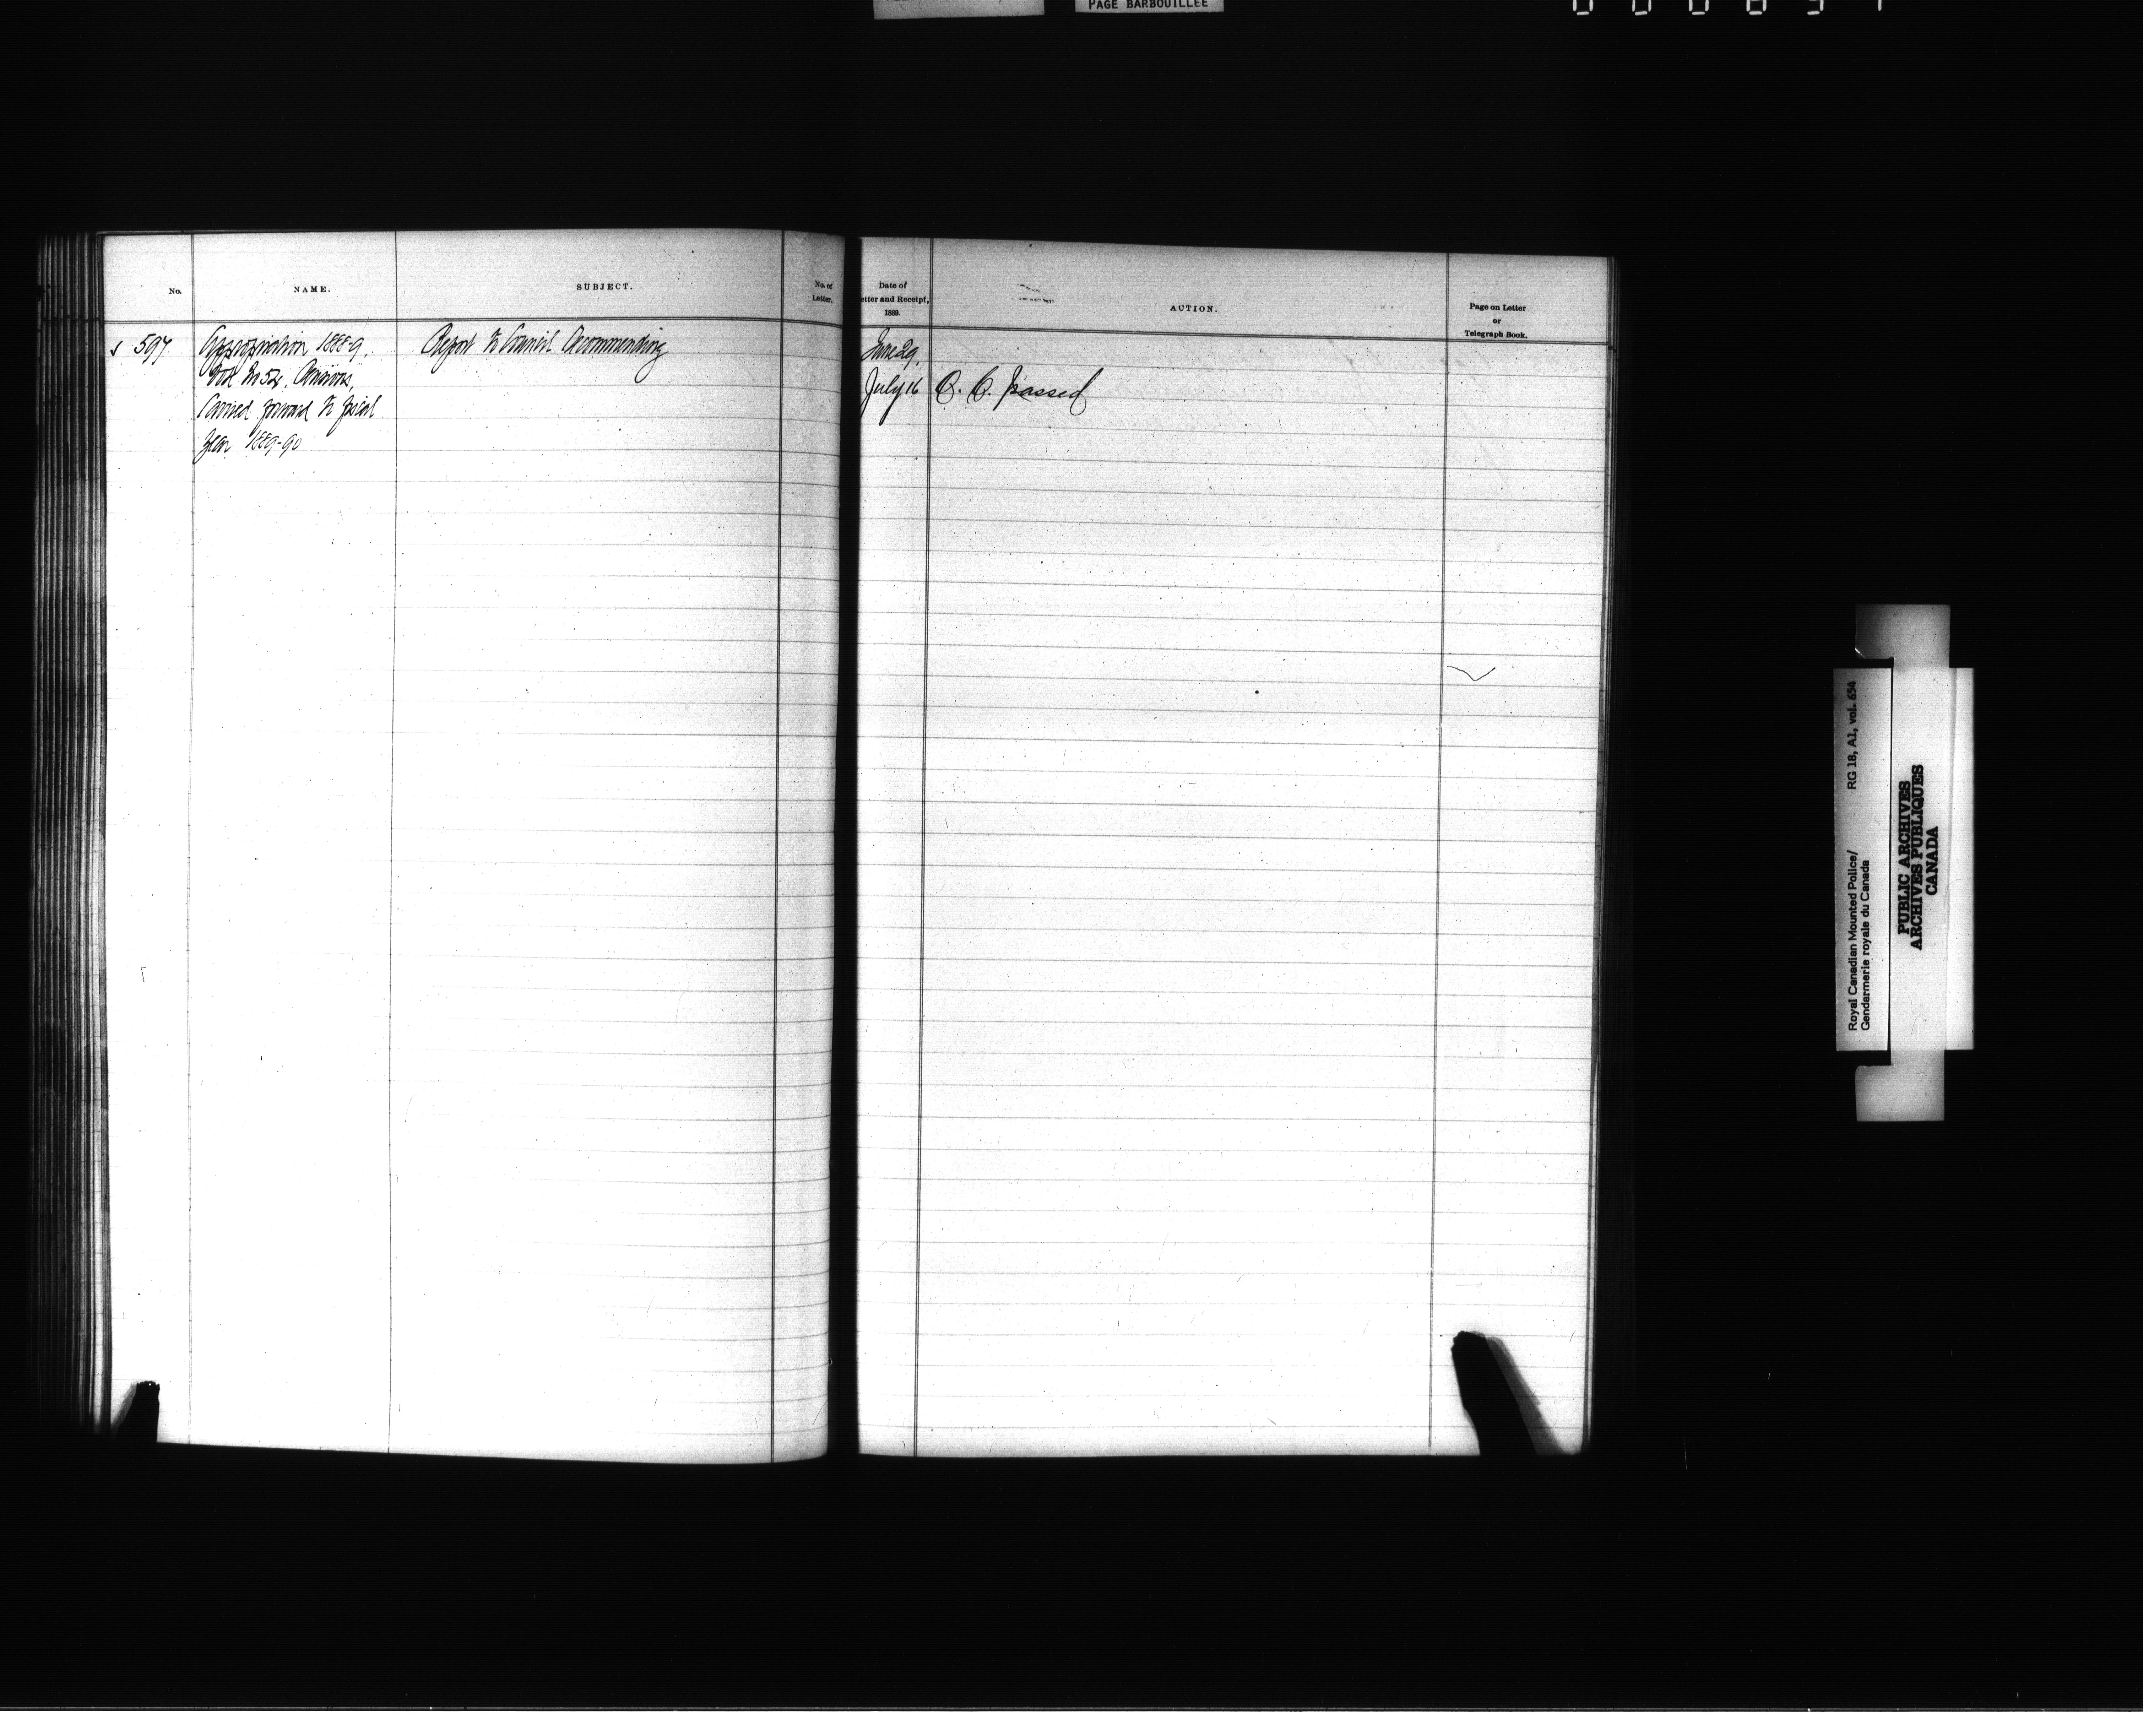 PAGE BARBOUILLÉE
No.
NAME.
SUBJECT.
No. of
Letter.
Date of
etter and Receipt,
1889.
ACTION.
Page on Letter
or
Telegraph Book.
597
Appropriation 1888-9,
Vote No 52,
Carried forward to fiscal
Year 1889-90
Report to Council recommending
June 29,
July 16
O. C. passed
Royal Canadian Mounted Police/
Gendarmerie royale du Canada
RG 18, A1, vol. 654
PUBLIC ARCHIVES
ARCHIVES PUBLIQUES
CANADA